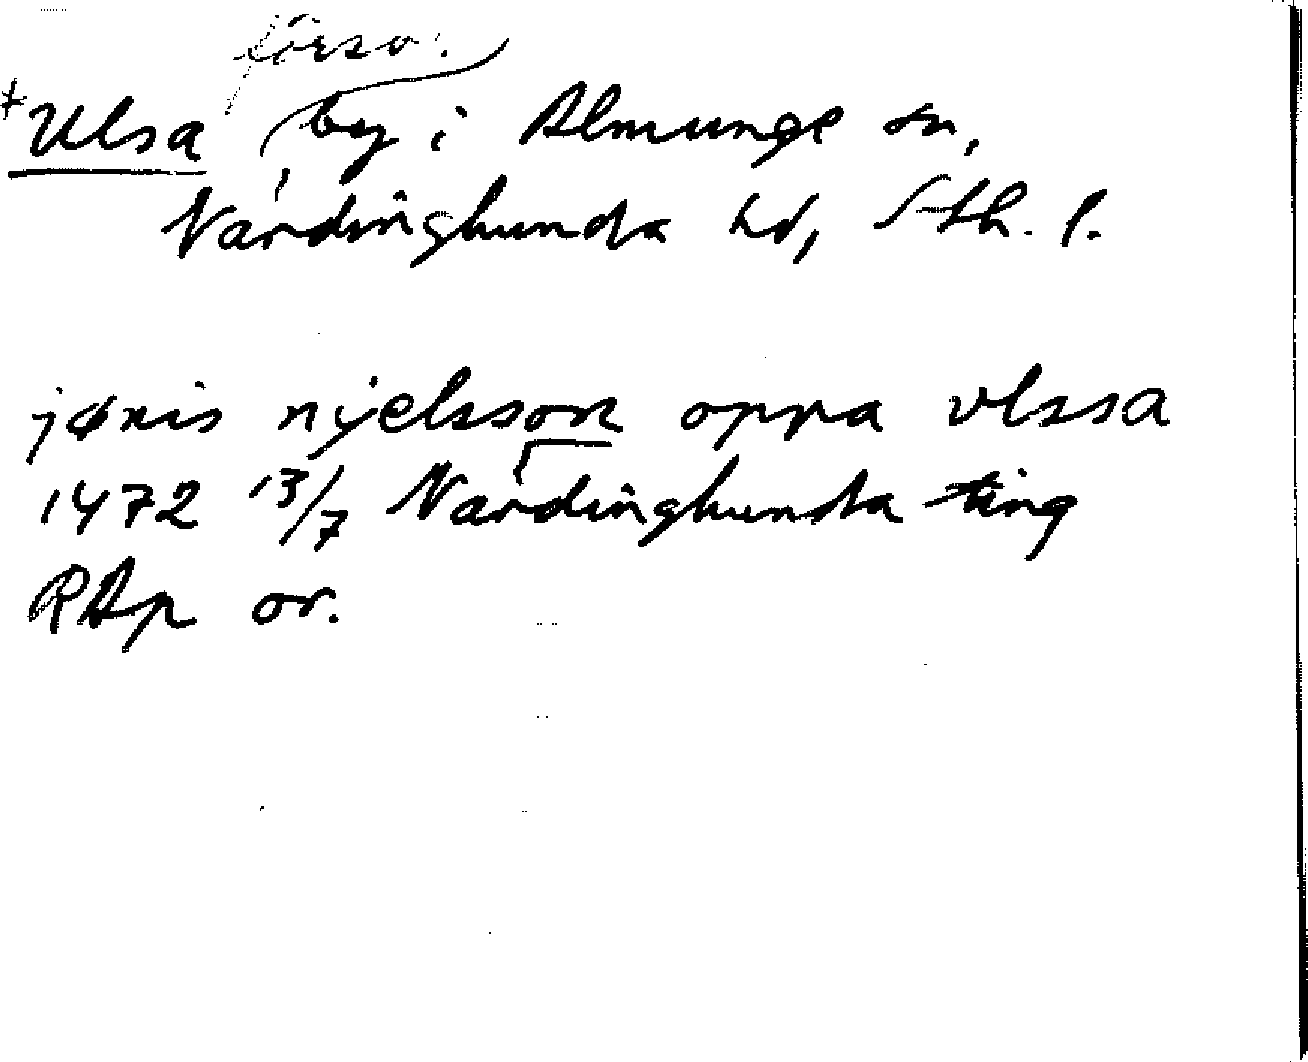 försv.
*Ulsa by i Almunge sn,
Närdinghundra hd, Sth. l.
jønis nyelsson oppa vlssa
1472 13/7 Närdinghundra ting
RAp or.